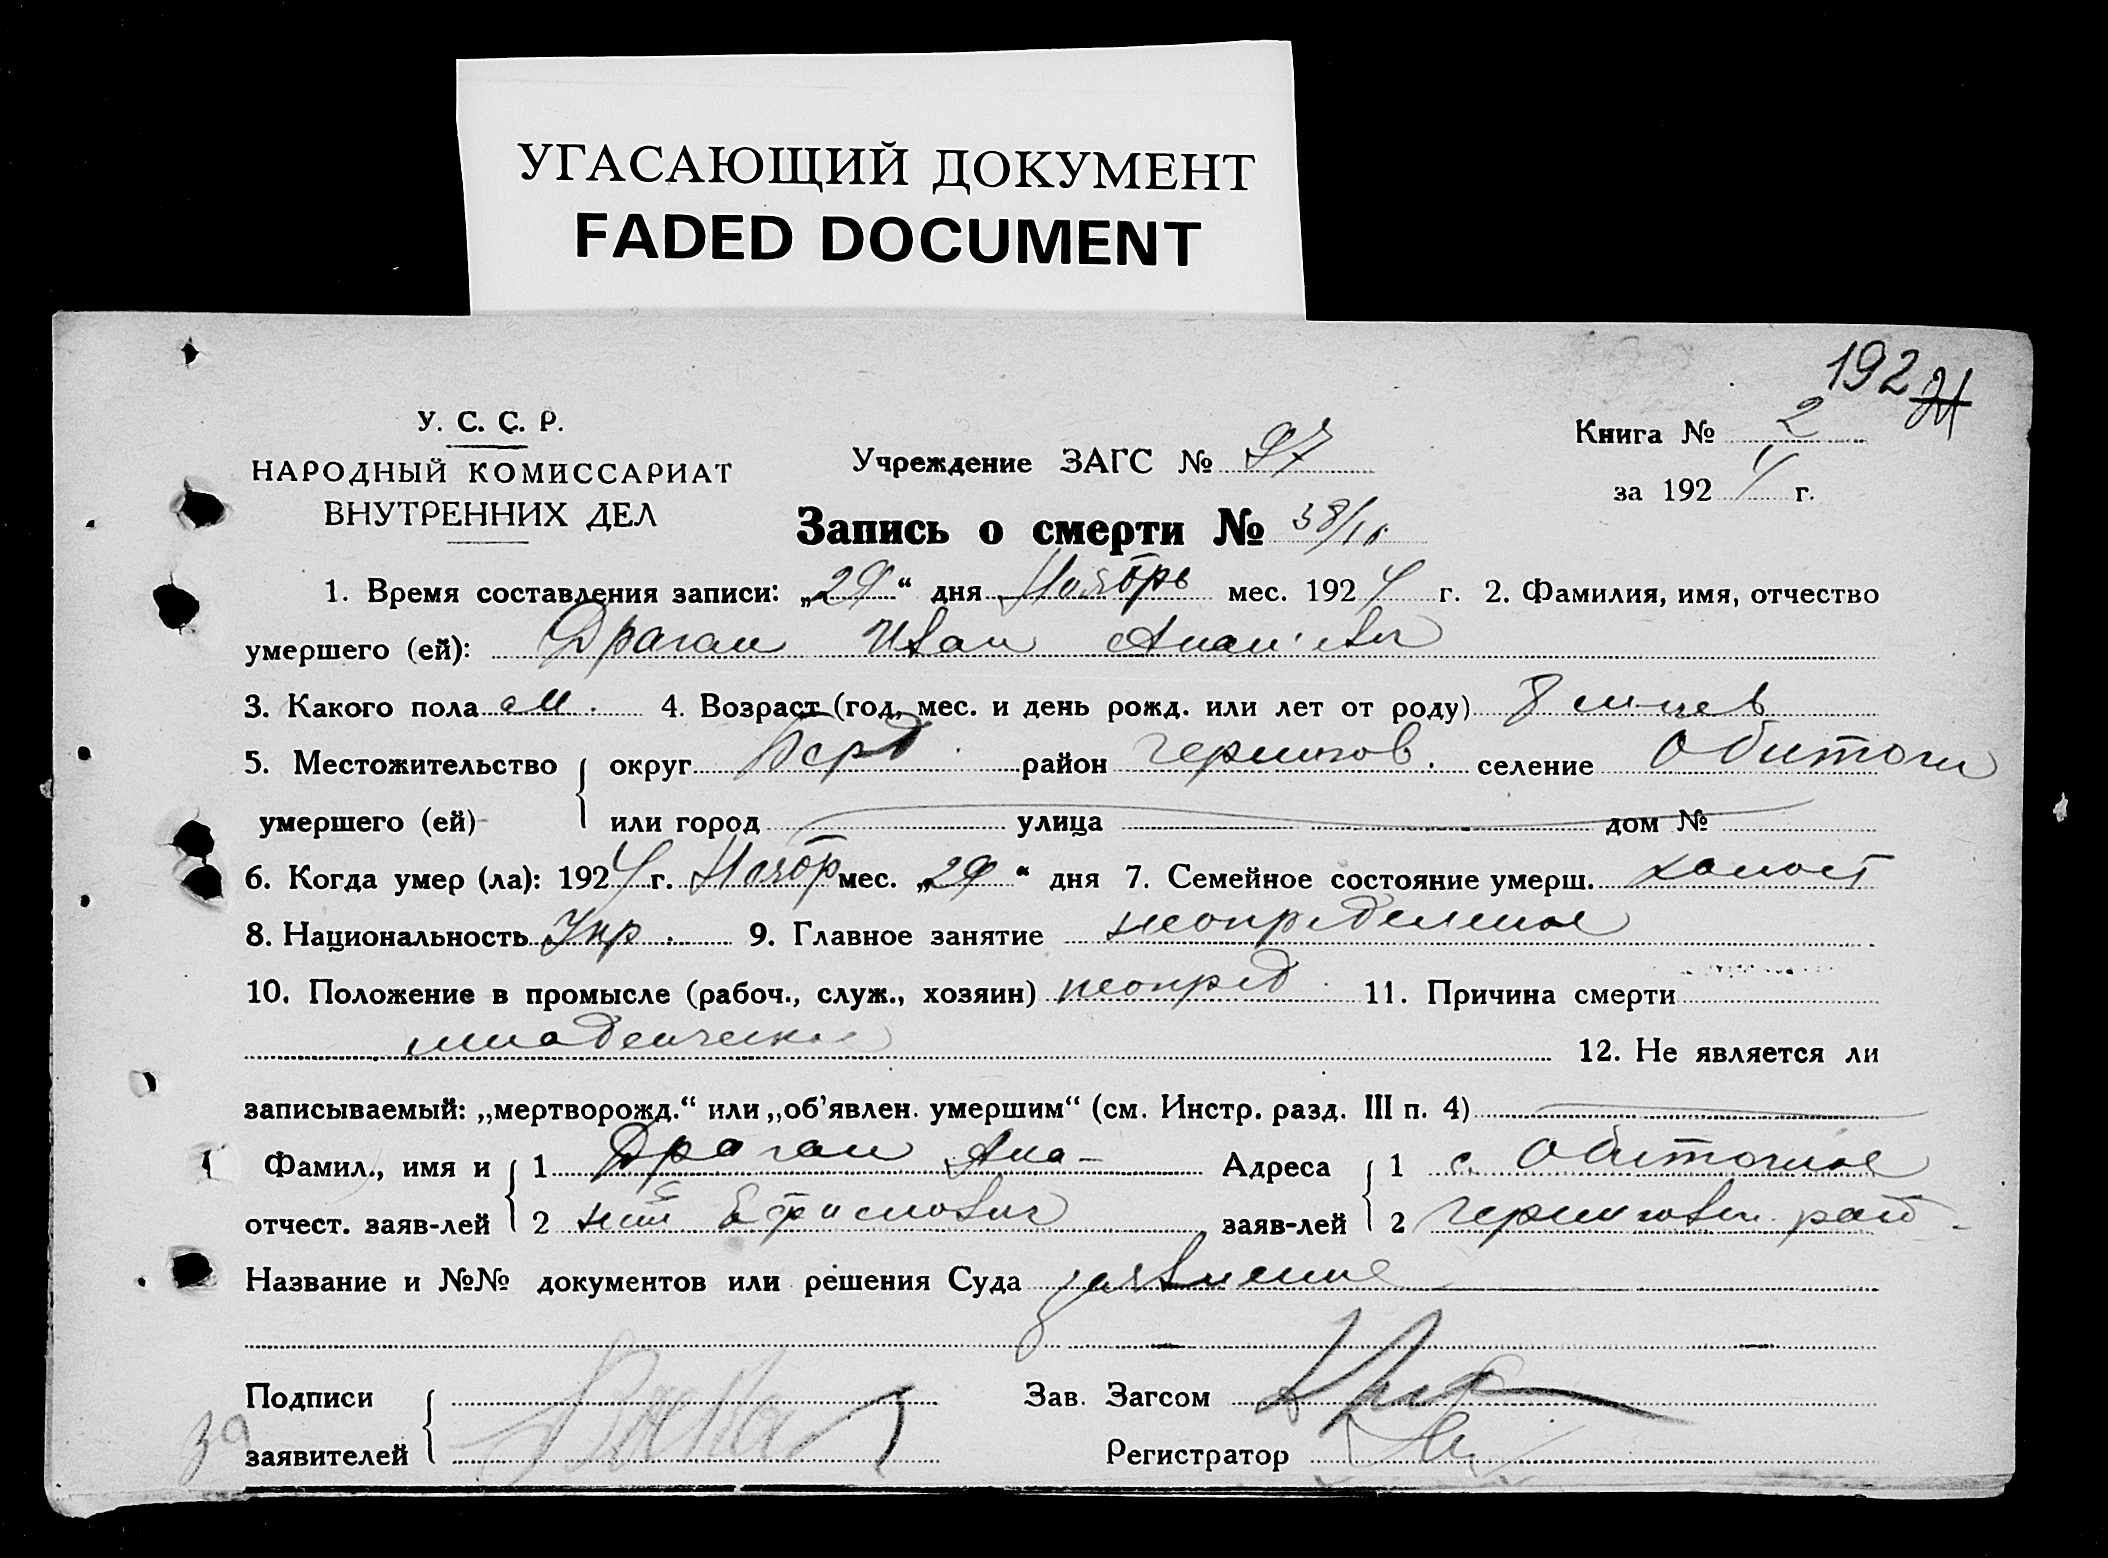 УГАСАЮЩИЙ ДОКУМЕНТ
FADED DOCUMENT
192 21
У. С. С. Р.
НАРОДНЫЙ КОМИССАРИАТ
ВНУТРЕННИХ ДЕЛ
Учреждение ЗАГС № 97
Книга № 2
за 1924 г.
Запись о смерти № 38/
1. Время составления записи: „29“ дня Ноябрь мес. 1924 г. 2. Фамилия, имя, отчество
умершего (ей): Драган Иван
3. Какого пола м. 4. Возраст (год, мес. и день рожд. или лет от роду)
5. Местожительство округ Берд. район Чернигов. селение Обиточн
умершего (ей) или город улица дом №
6. Когда умер (ла): 1924 г. Ноябр мес. „29“ дня 7. Семейное состояние умерш. холост
8. Национальность Укр. 9. Главное занятие неопределеное
10. Положение в промысле (рабоч., служ., хозяин) неопред. 11. Причина смерти
младенческая 12. Не является ли
записываемый: „мертворожд.“ или „об’явлен. умершим“ (см. Инстр. разд. III п. 4)
Фамил., имя и 1 Драган Ана- Адреса 1 с. Обиточное
отчест. заяв-лей 2 заяв-лей 2 Черниговск. район
Название и №№ документов или решения Суда заявление
Подписи Зав. Загсом
39 заявителей Регистратор